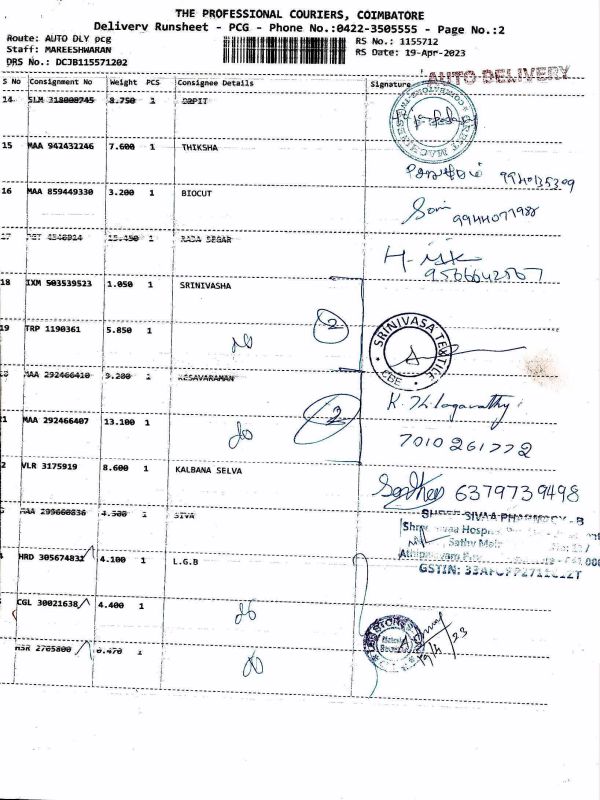 THE PROFESSIONAL COURIERS, COIMBATORE
Delivery Runsheet - PCG - Phone No.:0422-3505555 - Page No.:2
Route: AUTO DLY pcg
Staff: MAREESHWARAN
DRS No.: DCJB115571202
RS No.: 1155712
RS Date: 19-Apr-2023
AUTO DELIVERY
S No Consignment No Weight PCS Consignee Details Signature
14 SLM 318000745 8.750 1
15 MAA 942432246 7.600 1 THIKSHA
9940135309
16 MAA 859449330 3.200 1 BIOCUT
9944077988
4546924 15.450 1 RADA SEGAR
9566642567
18 IXM 503539523 1.050 1 SRINIVASHA
2
19 TRP 1190361 5.850 1 do
SRINIVASA TEXTILE
CBE
MAA 292466410 9.200 1 KESAVARAMAN
2
K. Thilagavathy
1 MAA 292466407 13.100 1 do
7010261772
2 VLR 3175919 8.600 1 KALBANA SELVA
6379739498
MAA 299660836 4.500 1 SIVA
SHREE SIVAA PHARMACY - B
Sathy Main
GSTIN:
HRD 305674831 4.100 1 L.G.B
CGL 30021638 4.400 1 do
HSR 2765800 6.470 1 do
STORES
19/4/23